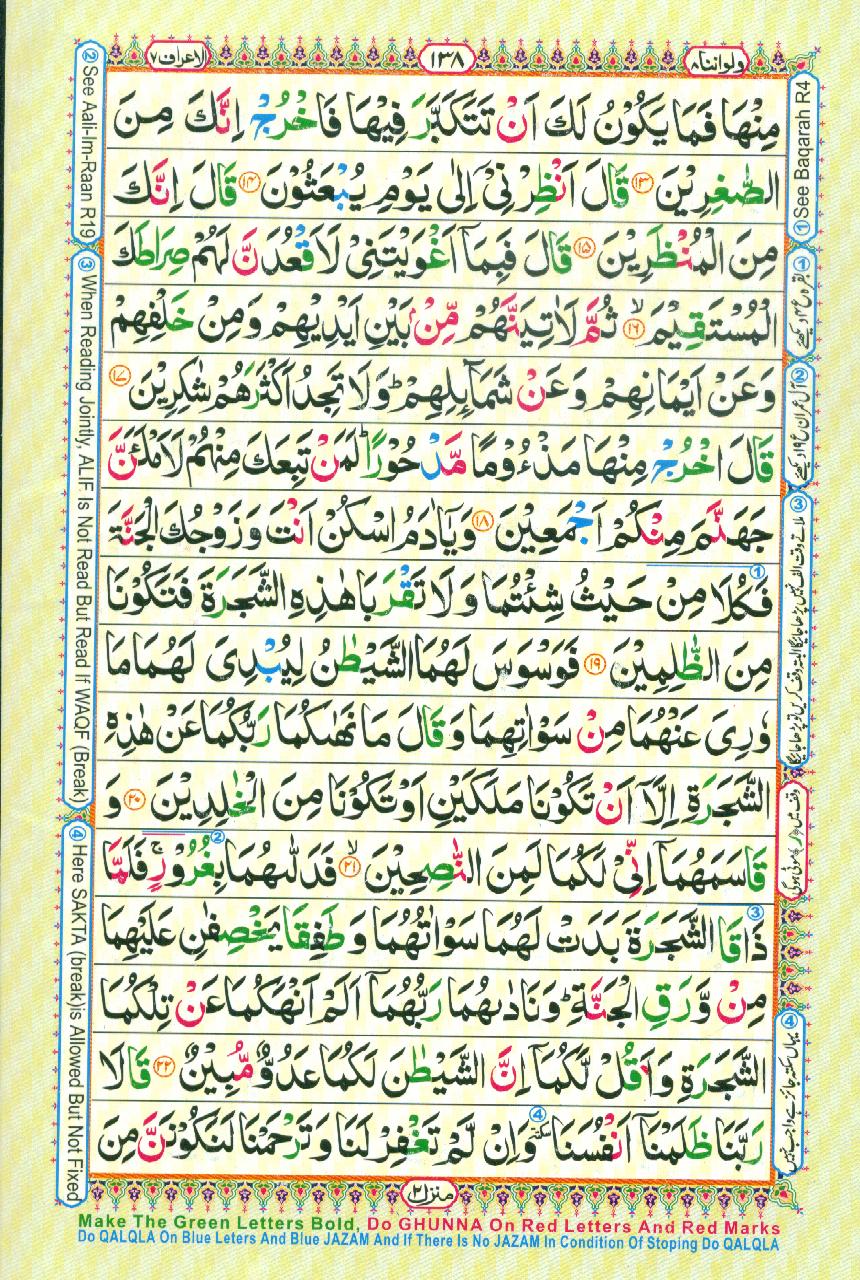 ولواننا ۸
۱۳۸
الاعراف ۷
مِنْهَا فَمَا يَكُوْنُ لَكَ اَنْ تَتَكَبَّرَ فِيْهَا فَاخْرُجْ اِنَّكَ مِنَ
الصّٰغِرِيْنَ ۱۳ قَالَ اَنْظِرْنِىْٓ اِلٰى يَوْمِ يُبْعَثُوْنَ ۱۴ قَالَ اِنَّكَ
مِنَ الْمُنْظَرِيْنَ ۱۵ قَالَ فَبِمَآ اَغْوَيْتَنِىْ لَاَقْعُدَنَّ لَهُمْ صِرَاطَكَ
الْمُسْتَقِيْمَ ۙ ۱۶ ثُمَّ لَاٰتِيَنَّهُمْ مِّنْۢ بَيْنِ اَيْدِيْهِمْ وَمِنْ خَلْفِهِمْ
وَعَنْ اَيْمَانِهِمْ وَعَنْ شَمَآئِلِهِمْ ؕ وَلَا تَجِدُ اَكْثَرَهُمْ شٰكِرِيْنَ ۱۷
قَالَ اخْرُجْ مِنْهَا مَذْءُوْمًا مَّدْحُوْرًا ؕ لَمَنْ تَبِعَكَ مِنْهُمْ لَاَمْلَئَنَّ
جَهَنَّمَ مِنْكُمْ اَجْمَعِيْنَ ۱۸ وَيٰٓاٰدَمُ اسْكُنْ اَنْتَ وَزَوْجُكَ الْجَنَّةَ
فَكُلَا مِنْ حَيْثُ شِئْتُمَا وَلَا تَقْرَبَا هٰذِهِ الشَّجَرَةَ فَتَكُوْنَا ①
مِنَ الظّٰلِمِيْنَ ۱۹ فَوَسْوَسَ لَهُمَا الشَّيْطٰنُ لِيُبْدِىَ لَهُمَا مَا
وٗرِىَ عَنْهُمَا مِنْ سَوْاٰتِهِمَا وَقَالَ مَا نَهٰىكُمَا رَبُّكُمَا عَنْ هٰذِهِ
الشَّجَرَةِ اِلَّآ اَنْ تَكُوْنَا مَلَكَيْنِ اَوْ تَكُوْنَا مِنَ الْخٰلِدِيْنَ ۲۰ وَ
قَاسَمَهُمَآ اِنِّىْ لَكُمَا لَمِنَ النّٰصِحِيْنَ ۙ ۲۱ فَدَلّٰىهُمَا بِغُرُوْرٍ ۚ فَلَمَّا ②
ذَاقَا الشَّجَرَةَ بَدَتْ لَهُمَا سَوْاٰتُهُمَا وَطَفِقَا يَخْصِفٰنِ عَلَيْهِمَا ③
مِنْ وَّرَقِ الْجَنَّةِ ؕ وَنَادٰىهُمَا رَبُّهُمَآ اَلَمْ اَنْهَكُمَا عَنْ تِلْكُمَا
الشَّجَرَةِ وَاَقُلْ لَّكُمَآ اِنَّ الشَّيْطٰنَ لَكُمَا عَدُوٌّ مُّبِيْنٌ ۲۲ قَالَا
رَبَّنَا ظَلَمْنَآ اَنْفُسَنَا ④ سكتة وَاِنْ لَّمْ تَغْفِرْ لَنَا وَتَرْحَمْنَا لَنَكُوْنَنَّ مِنَ
منزل ۲
① See Baqarah R4
① بقرہ ع۴ دیکھئے
② آل عمران ع۱۹ دیکھئے
③ ملاتے وقت الف نہیں پڑھا جائیگا البتہ وقف کریں تو پڑھا جائیگا
وقف میں (ر) موٹی ہوگی
④ یہاں سکتہ جائز ہے واجب نہیں
② See Aali-Im-Raan R19
③ When Reading Jointly, ALIF Is Not Read But Read If WAQF (Break)
④ Here SAKTA (break)is Allowed But Not Fixed
Make The Green Letters Bold, Do GHUNNA On Red Letters And Red Marks
Do QALQLA On Blue Leters And Blue JAZAM And If There Is No JAZAM In Condition Of Stoping Do QALQLA